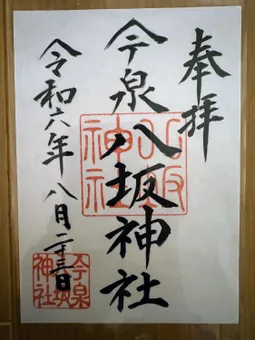 奉拝
今泉八坂神社
令和六年八月二十三日
八坂神社
今泉八坂神社